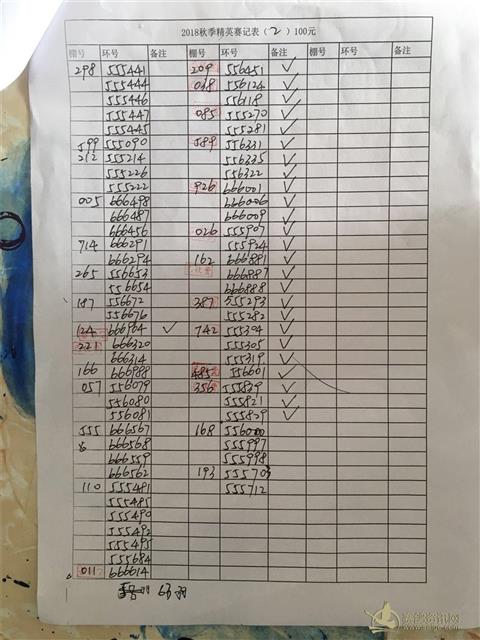 2018秋季精英赛记表（2）100元
棚号 环号 备注 棚号 环号 备注 棚号 环号 备注 棚号 环号
298 555441 209 556451 ✓
555444 038 556124 ✓
555446 556118 ✓
555447 085 555270 ✓
555445 555281 ✓
599 555090 589 556331 ✓
212 555214 556335 ✓
555226 556322 ✓
555222 926 666001 ✓
005 666498 666006 ✓
666487 666009 ✓
666456 026 555907 ✓
714 666291 555924 ✓
666294 162 666881 ✓
265 556653 666887 ✓
556654 666888 ✓
187 556672 387 555293 ✓
556676 555282 ✓
124 666964 ✓ 742 555304 ✓
221 666320 555305 ✓
666314 555319 ✓
166 666988 485 556601 ✓
057 556079 356 555829 ✓
556080 555821 ✓
556081 555829 ✓
555 666567 168 556000
666568 555997
666559 555998
666562 193 555703
110 555481 555712
555485
555490
555492
555495
555684
011 666614
63羽